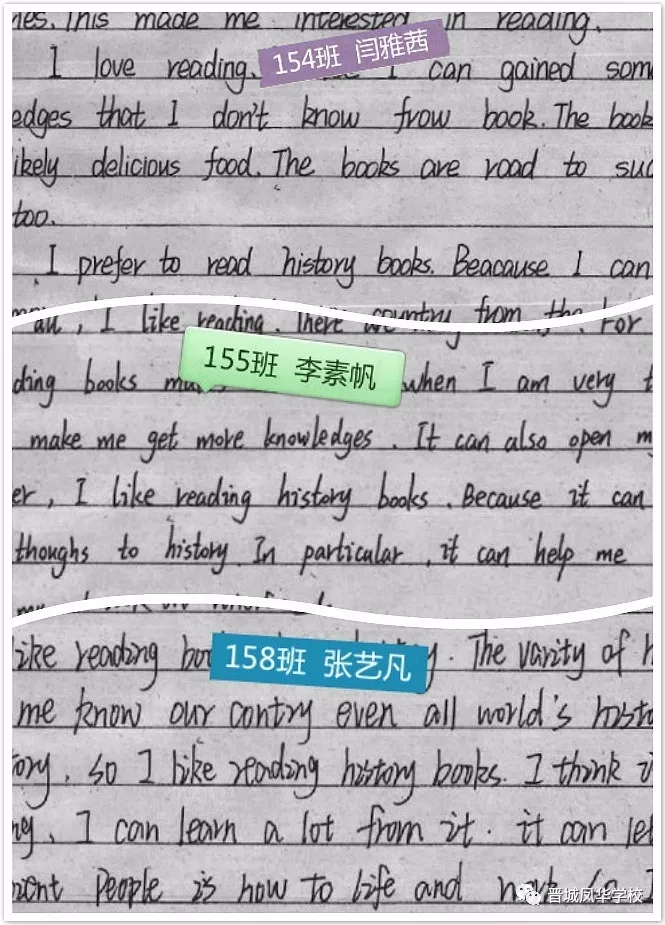 nes. This made me interested in reading.
154班 闫雅茜
I love reading. I can gained som
edges that I don't know frow book. The book
ikely delicious food. The books are road to suc
too.
I prefer to read history books. Beacause I can
I like reading. There country from the. For
155班 李素帆
ding books when I am very t
make me get more knowledges. It can also open m
er, I like reading history books. Because it can
thoughs to history In particular, it can help me
158班 张艺凡
ike reading The varity of h
me know our contry even all world's histo
ory, so I like reading history books. I think i
ng, I can learn a lot from it. it can let
ent people is how to life and
晋城凤华学校